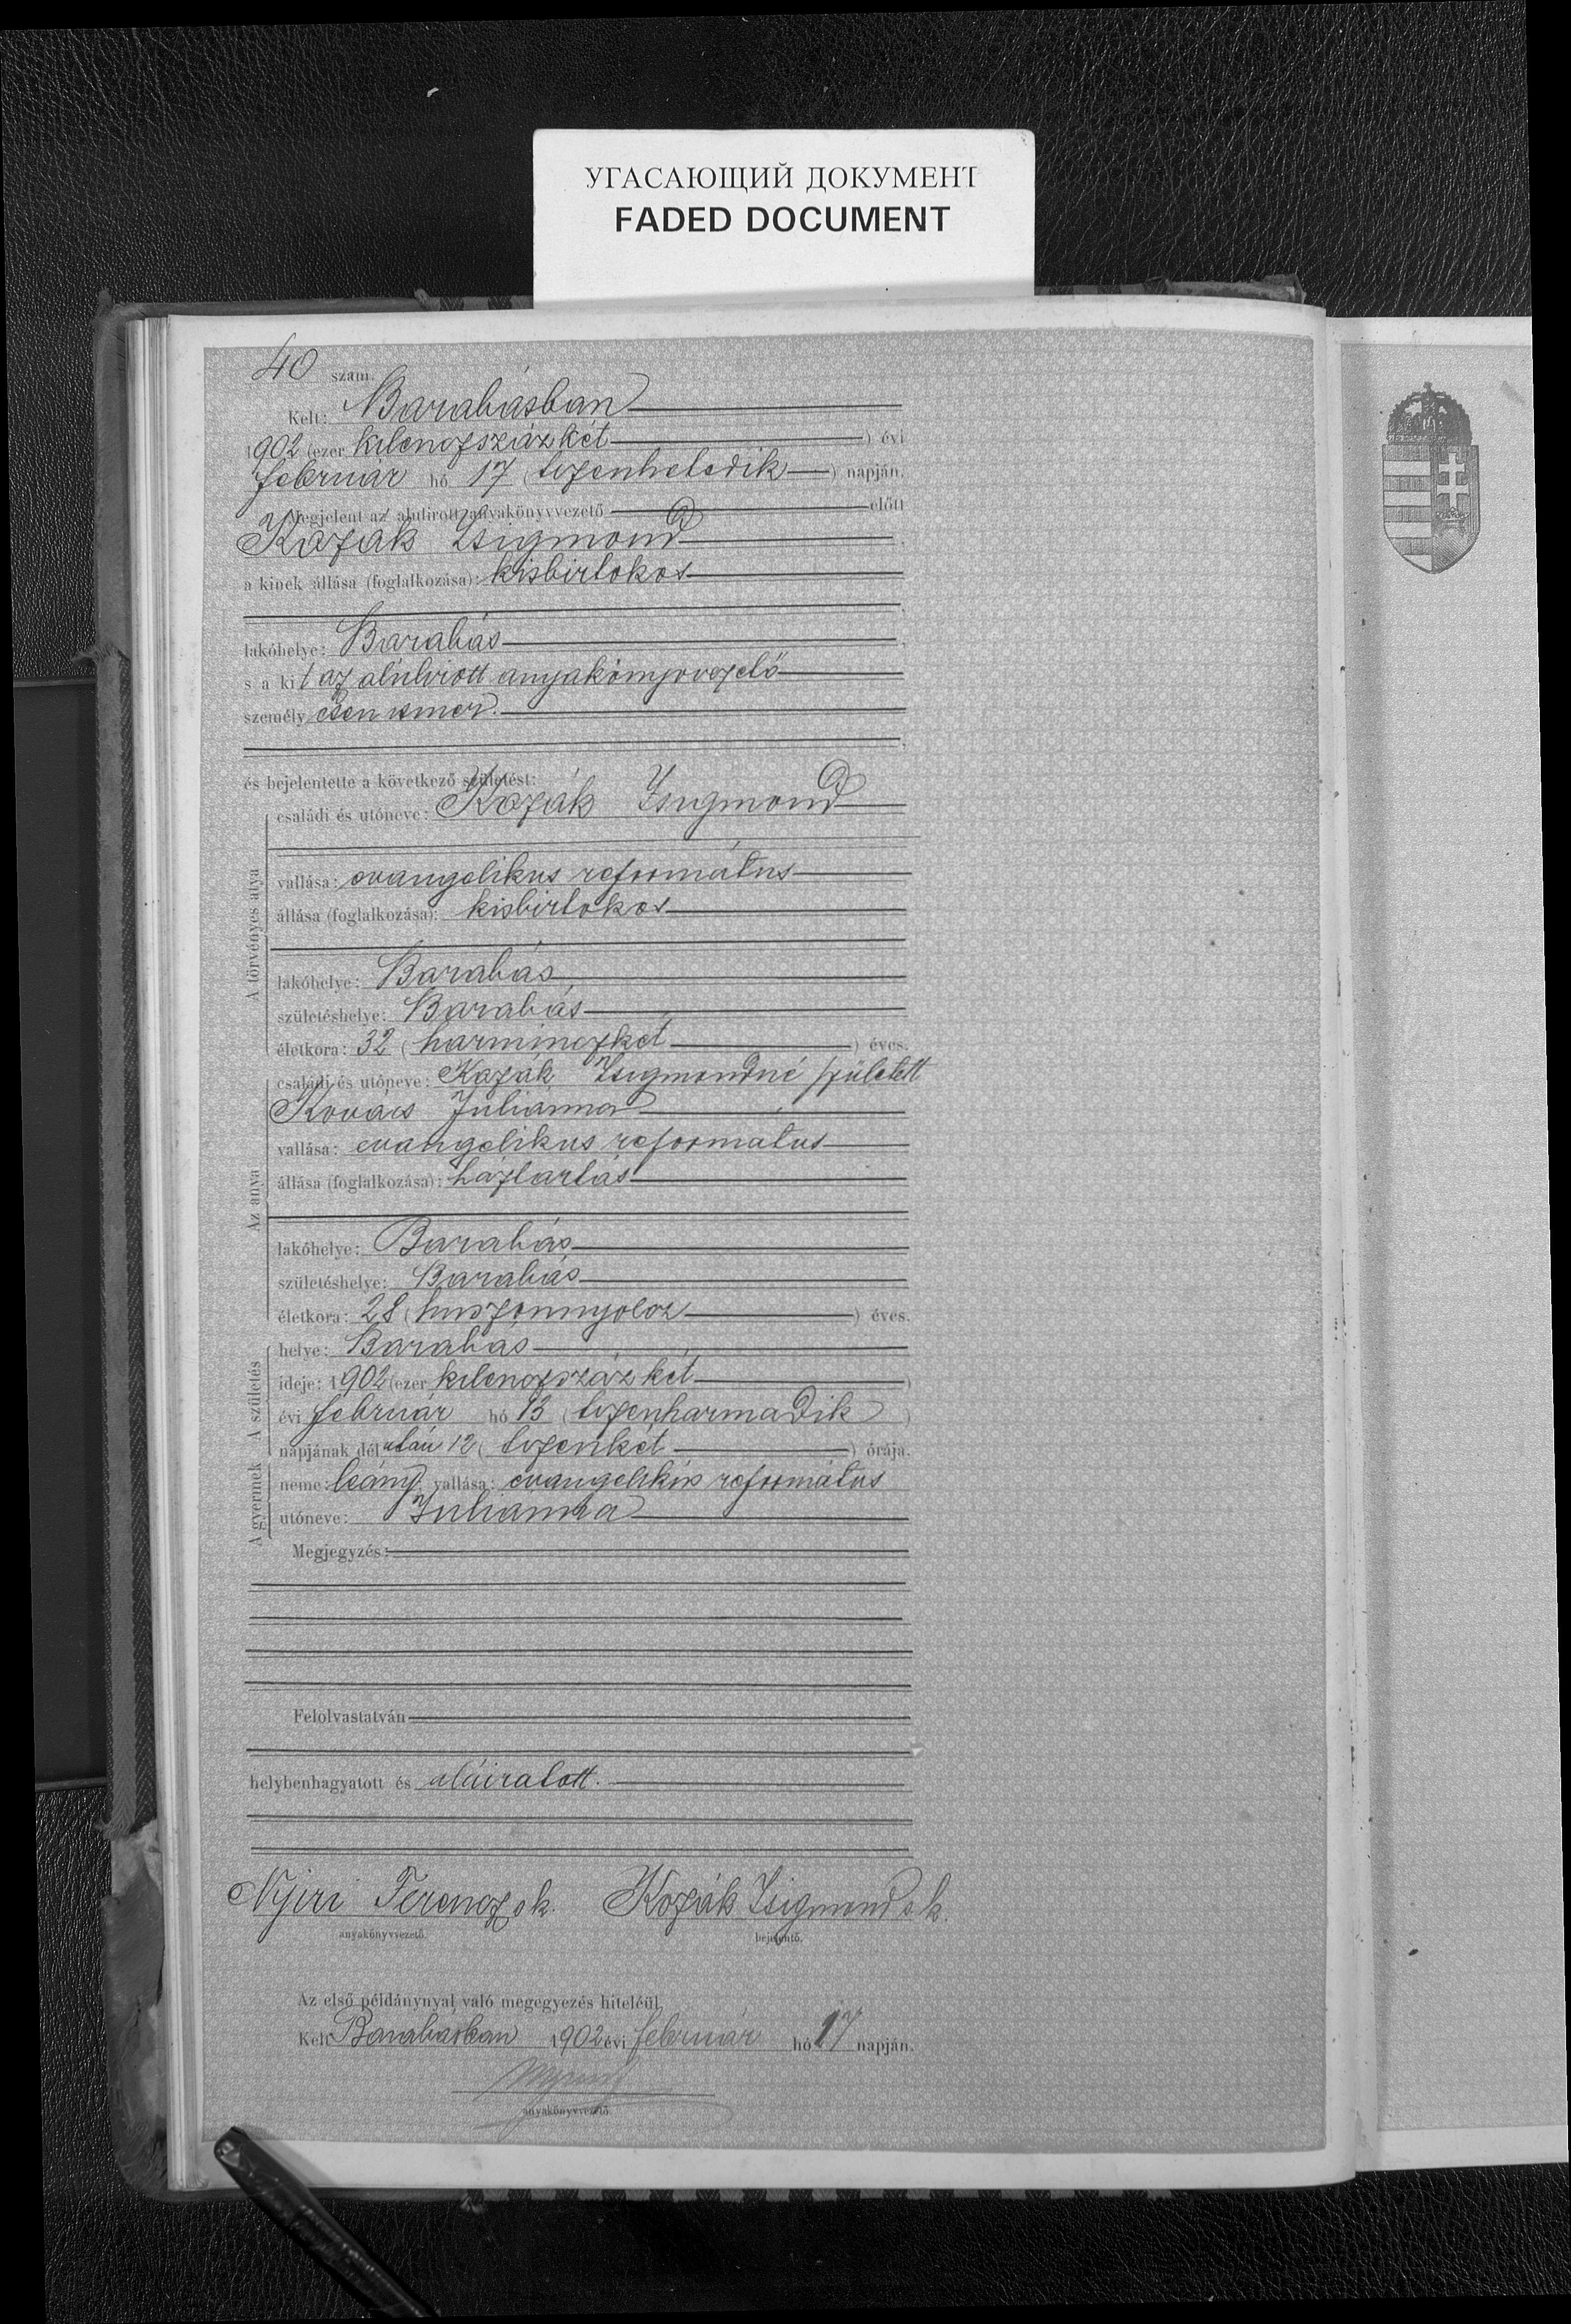 УГАСАЮЩИЙ ДОКУМЕНТ
FADED DOCUMENT
40 szám.
Kelt: Barabásban
1902 (ezer kilenczszázkét ) évi
február hó 17 ( tizenhetedik ) napján.
Megjelent az alulirott anyakönyvvezető előtt
Kozák Zsigmond
a kinek állása (foglalkozása): kisbirtokos
lakóhelye: Barabás
s a kit az alúlirott anyakönyvvezető
személyesen ismer.
és bejelentette a következő születést:
A törvényes atya
családi és utóneve: Kozák Zsigmond
vallása: evangelikus református
állása (foglalkozása): kisbirtokos
lakóhelye: Barabás
születéshelye: Barabás
életkora: 32 ( harminczkét ) éves.
Az anya
családi és utóneve: Kozák Zsigmondné született
Kovács Juliánna
vallása: evangelikus református
állása (foglalkozása): háztartás
lakóhelye: Barabás
születéshelye: Barabás
életkora: 28 ( huszonnyolcz ) éves.
A születés
helye: Barabás
ideje: 1902 (ezer kilenczszázkét )
évi február hó 13 ( tizenharmadik )
napjának délután 12 ( tizenkét ) órája.
A gyermek
neme: leány vallása: evangelikus református
utóneve: Juliánna
Megjegyzés:
Felolvastatván
helybenhagyatott és aláiratott.
Nyiri Ferencz sk. Kozák Zsigmond s.k.
anyakönyvvezető. bejelentő.
Az első példánynyal való megegyezés hiteléül
Kelt Barabásban 1902 évi február hó 17 napján.
anyakönyvvezető